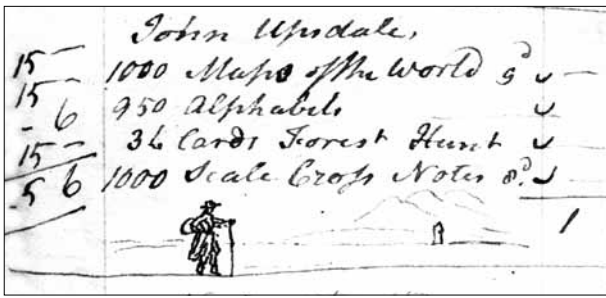 John Upsdale,
15 – 1000 Maps of the World 9d –
15 – 950 Alphabets
- 6 36 Cards Forest Hunt
15 – 1000 Scale Cross Notes 8d.
5 6
1